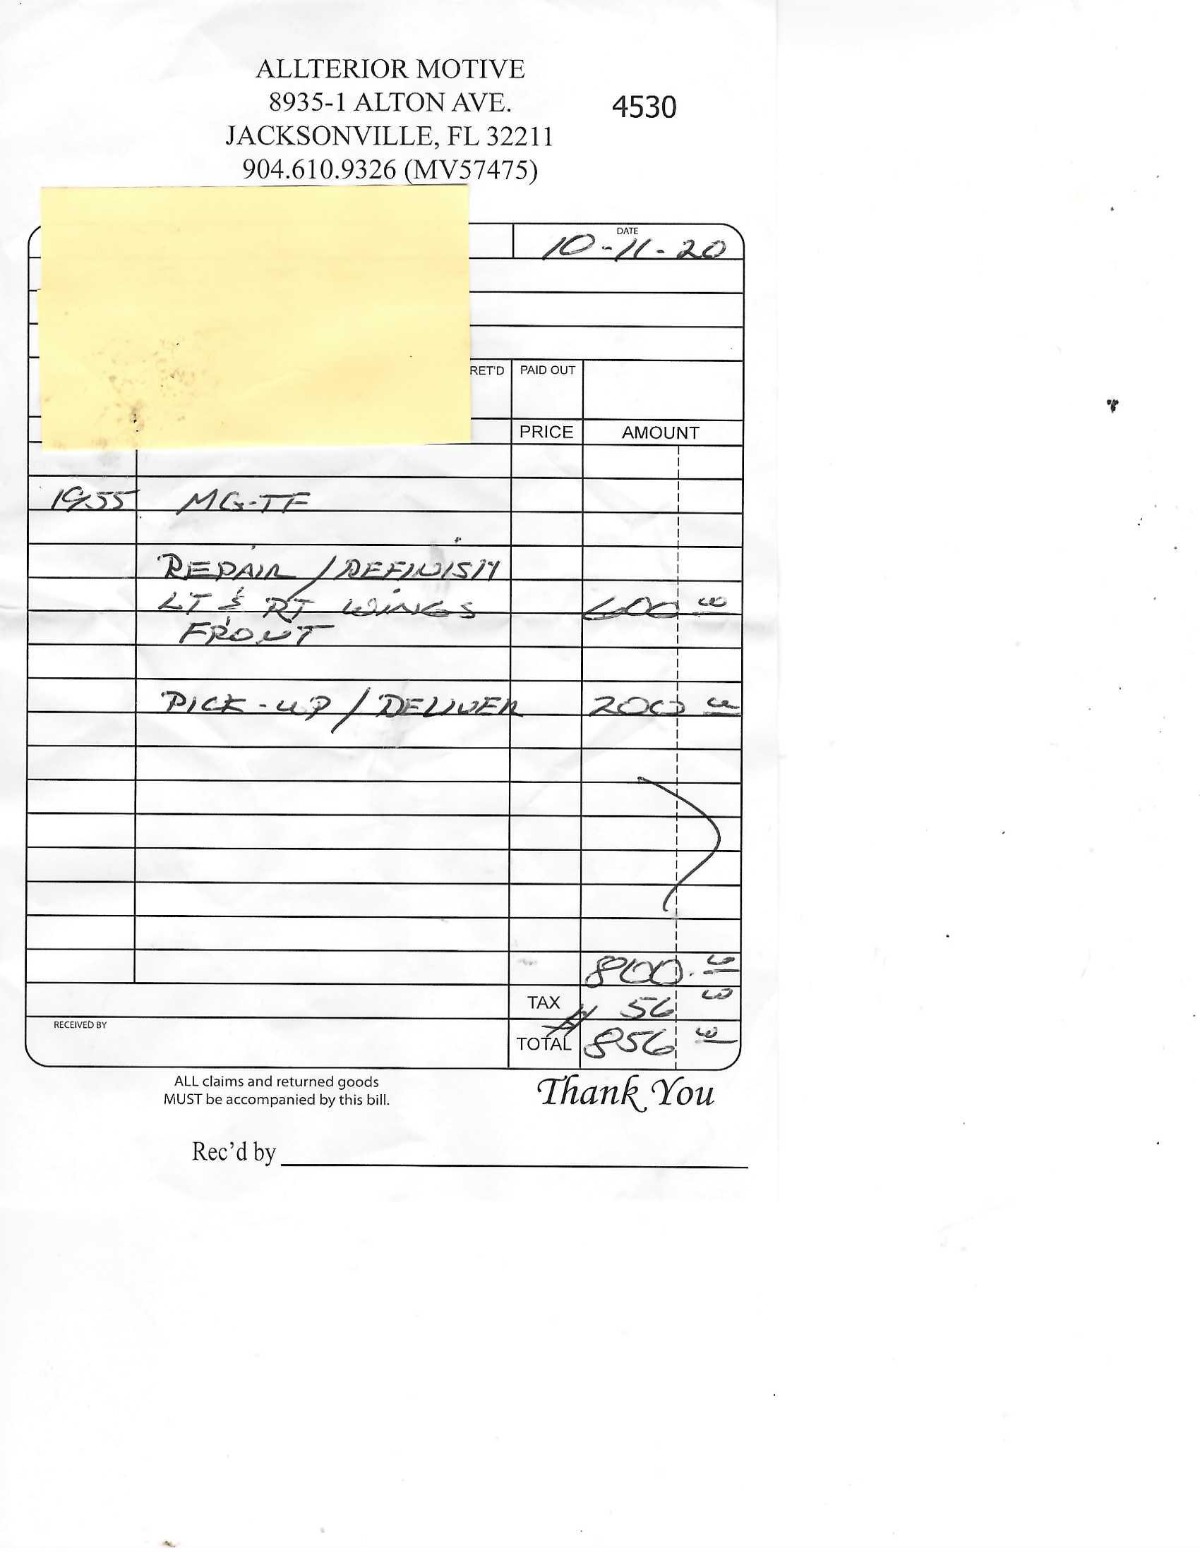 ALLTERIOR MOTIVE
8935-1 ALTON AVE.
4530
JACKSONVILLE, FL 32211
904.610.9326 (MV57475)
DATE
10-11-20
RET'D PAID OUT
PRICE AMOUNT
1955 MG-TF
REPAIR / REFINISH
LT & RT WINGS 600 00
FRONT
PICK-UP / DELIVER 200 00
800.00
TAX 56 00
RECEIVED BY
TOTAL 856 00
ALL claims and returned goods
MUST be accompanied by this bill.
Thank You
Rec'd by